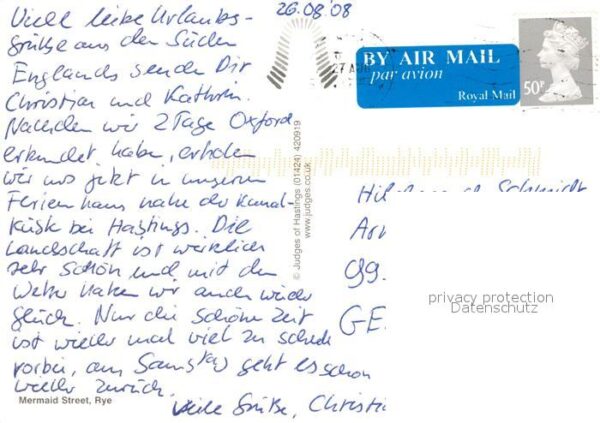 26.08.'08
Viele liebe Urlaubs-
grüße aus dem Süden
Englands senden Dir
Christian und Kathrin.
Nachdem wir 2 Tage Oxford
erkundet haben, erholen
wir uns jetzt in unserem
Ferienhaus nahe der Kanal-
küste bei Hastings. Die
Landschaft ist wirklich
sehr schön und mit dem
Wetter haben wir auch wieder
Glück. Nur die schöne Zeit
ist wieder mal viel zu schnell
vorbei, am Samstag geht es schon
wieder zurück.
Viele Grüße, Christi
Mermaid Street, Rye
© Judges of Hastings (01424) 420919
www.judges.co.uk
27 AU
BY AIR MAIL
par avion
Royal Mail
50P
Schmidt
99
GE
privacy protection
Datenschutz